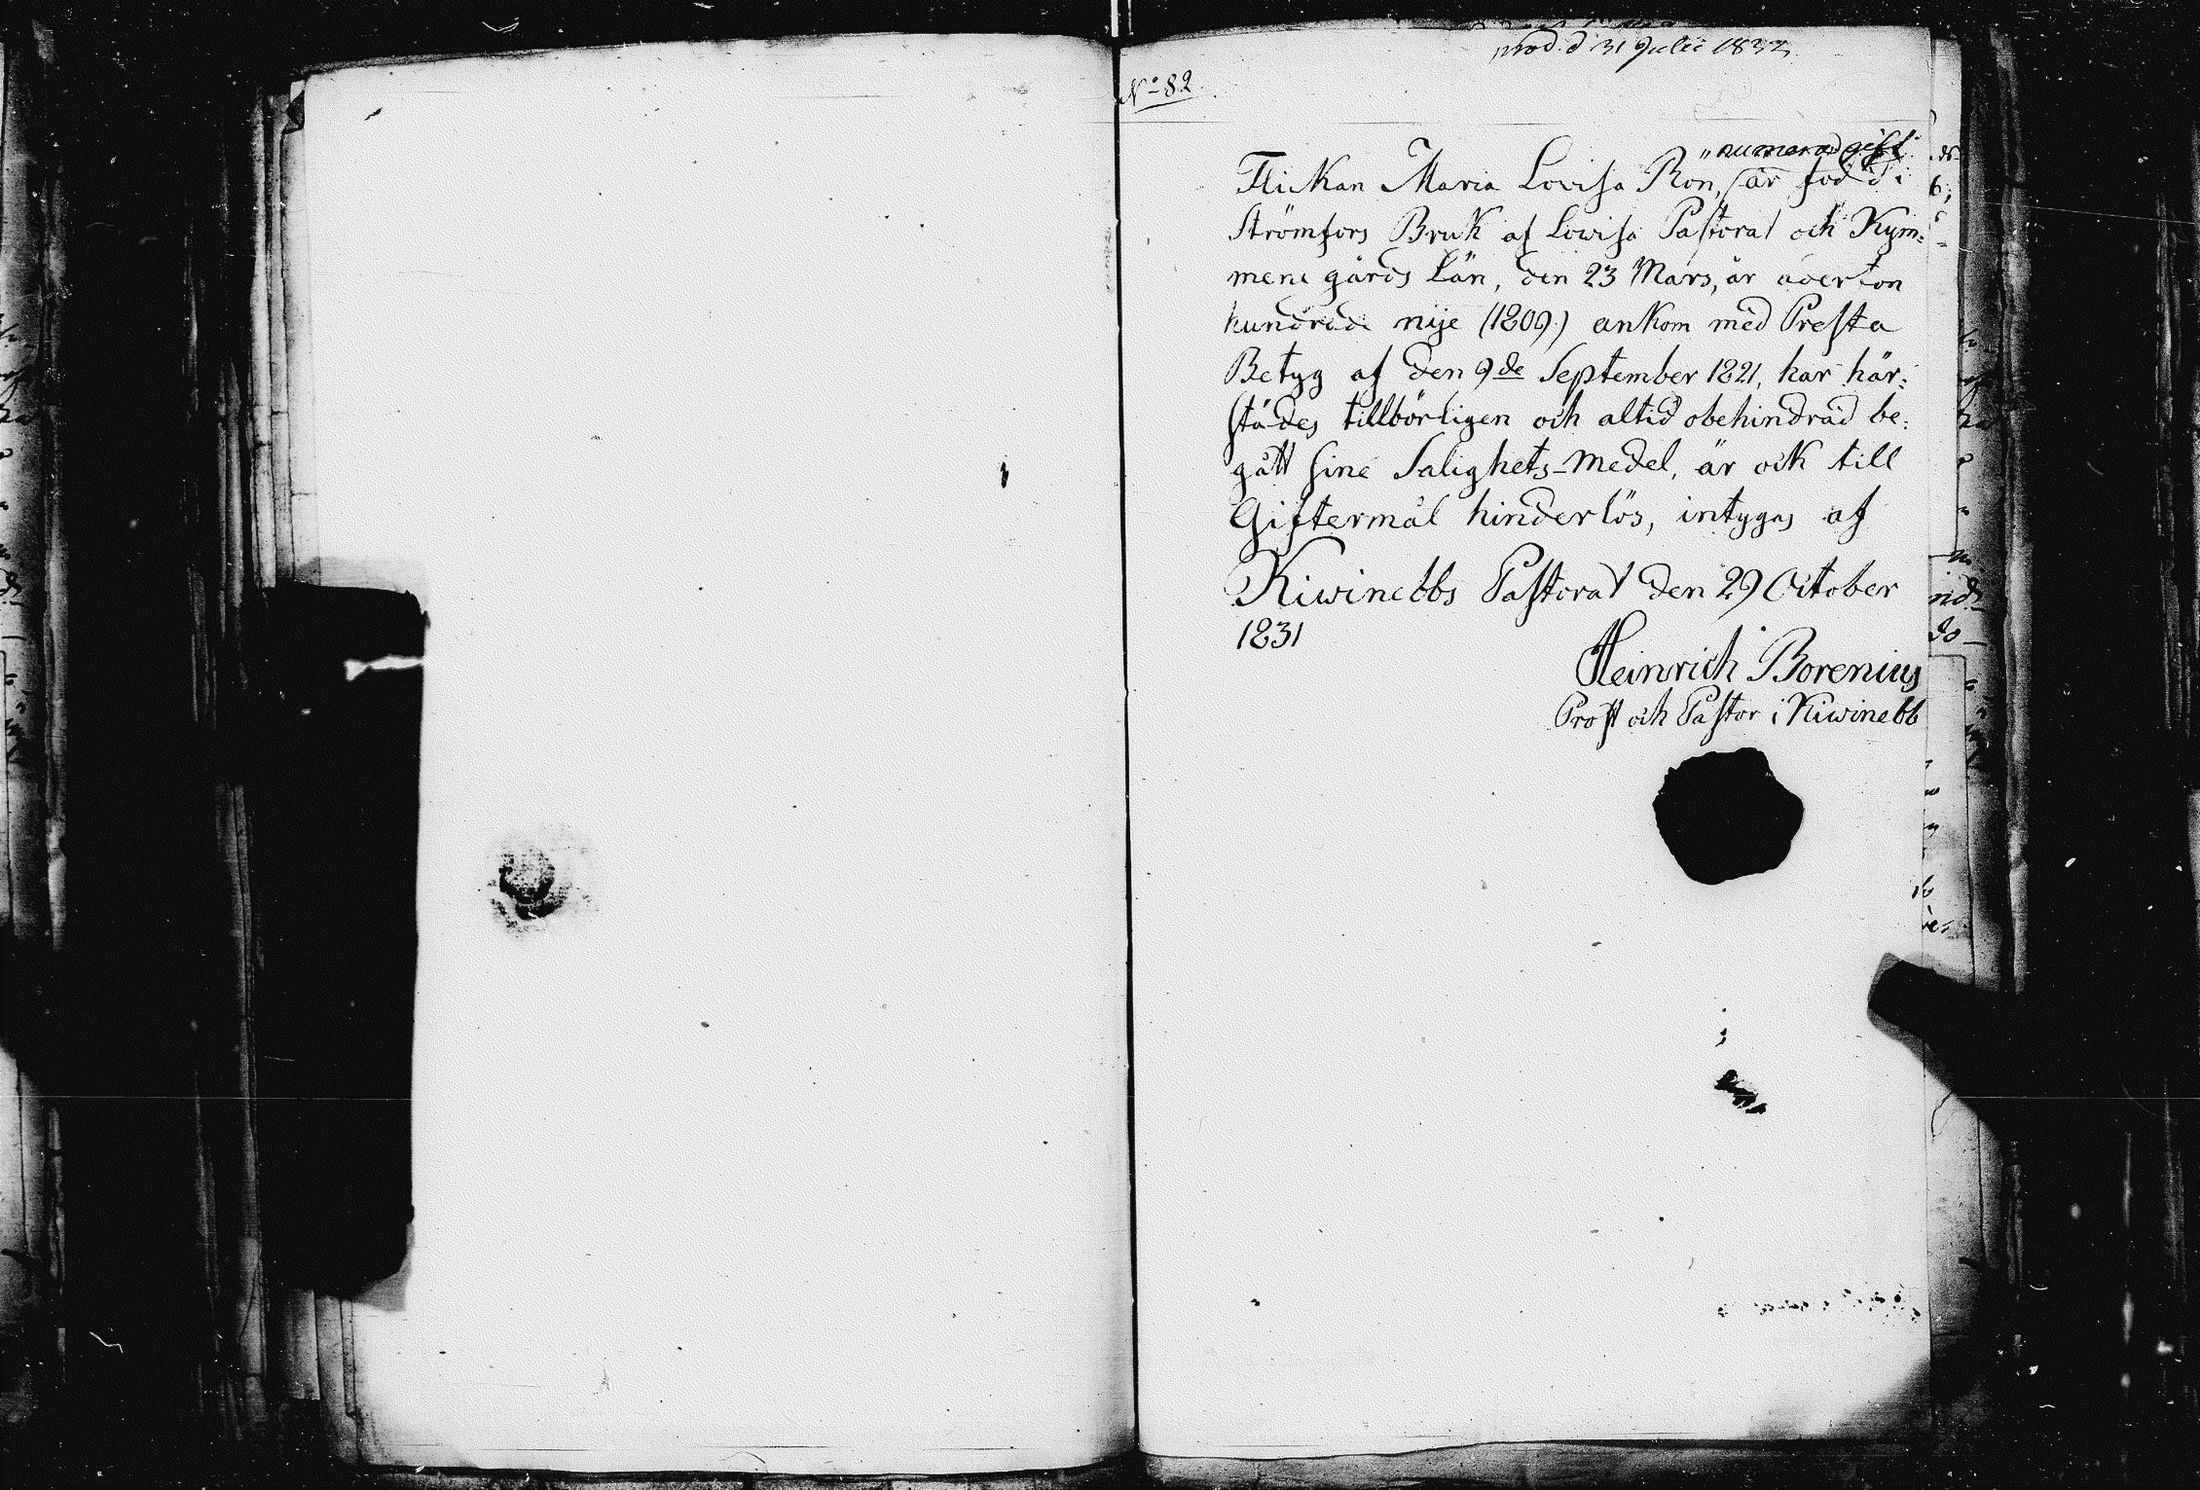 prod. d 31 Julii 1832
No 82
"numera gift"
Flickan Maria Lovisa Ron, är född i
Strömfors Bruk af Lovisa Pastorat och Kym=
mene gårds Län, den 23 Mars, år aderton
hundrade nije (1809.) ankom med Presta
Betyg af den 9de September 1821, har här=
städes tillbörligen och altid obehindrad be=
gått sine Salighets-Medel, är ock till
Giftermål hinderlös, intygas af
Kiwinebbs Pastorat den 29 October
1831
Heinrich Borenius
Prost och Pastor i Kiwinebb